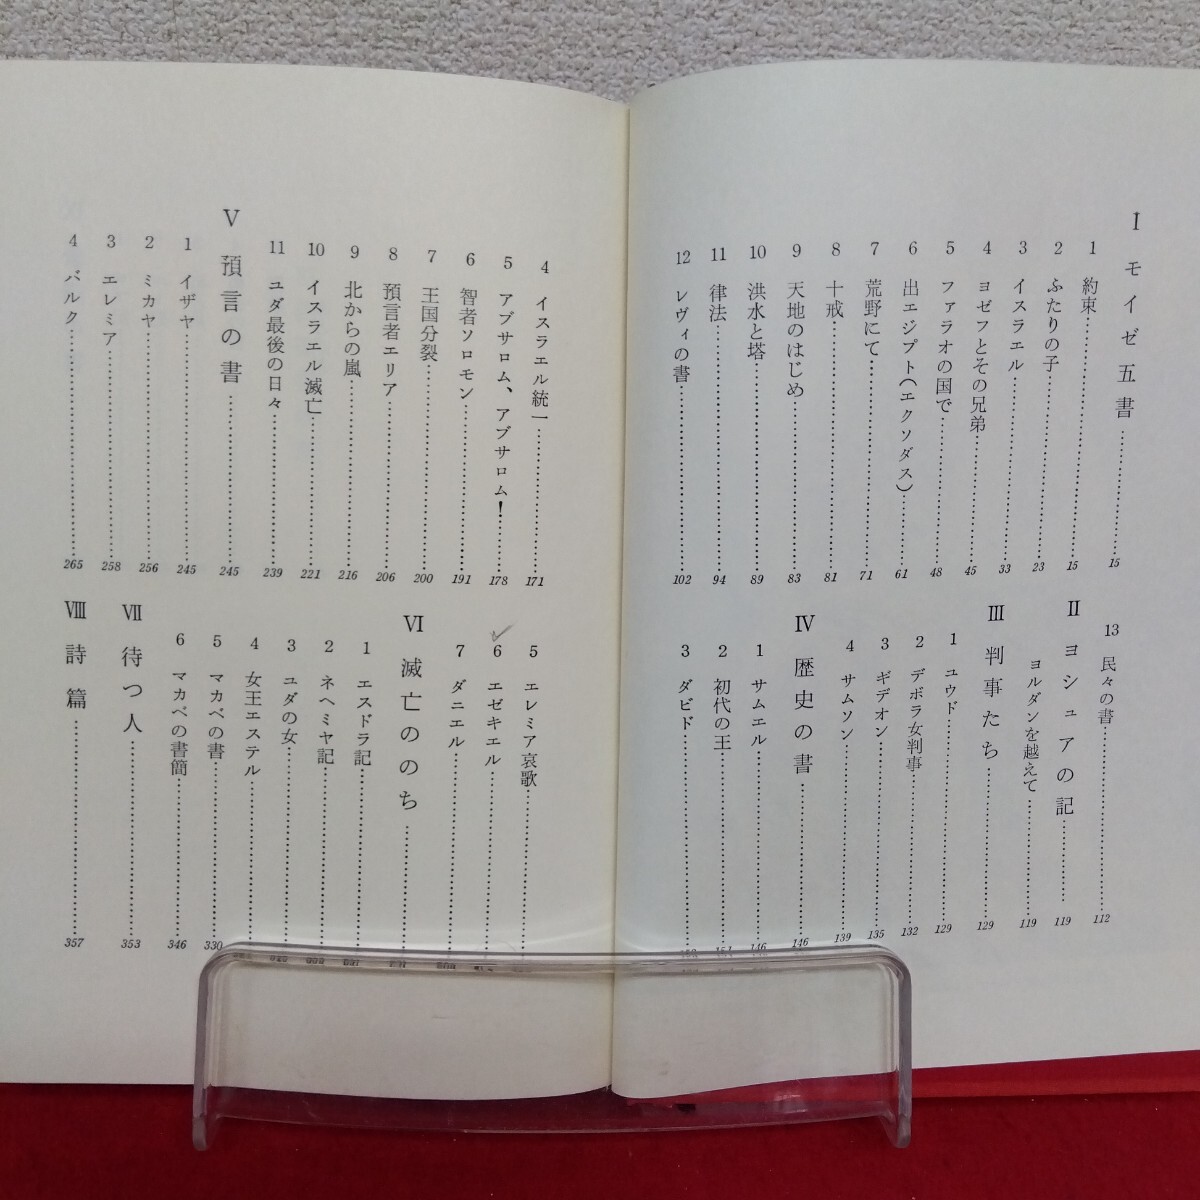 I モイゼ五書 15
1 約束 15
2 ふたりの子 23
3 イスラエル 33
4 ヨゼフとその兄弟 45
5 ファラオの国で 48
6 出エジプト(エクソダス) 61
7 荒野にて 71
8 十戒 81
9 天地のはじめ 83
10 洪水と塔 89
11 律法 94
12 レヴィの書 102
13 民々の書 112
II ヨシュアの記 119
ヨルダンを越えて 119
III 判事たち 129
1 ユウド 129
2 デボラ女判事 132
3 ギデオン 135
4 サムソン 139
IV 歴史の書 146
1 サムエル 146
2 初代の王 151
3 ダビド
4 イスラエル統一 171
5 アブサロム、アブサロム! 178
6 智者ソロモン 191
7 王国分裂 200
8 預言者エリア 206
9 北からの嵐 216
10 イスラエル滅亡 221
11 ユダ最後の日々 239
V 預言の書 245
1 イザヤ 245
2 ミカヤ 256
3 エレミア 258
4 バルク 265
5 エレミア哀歌
6 エゼキエル
7 ダニエル
VI 滅亡ののち
1 エスドラ記
2 ネヘミヤ記
3 ユダの女
4 女王エステル
5 マカベの書 330
6 マカベの書簡 346
VII 待つ人 353
VIII 詩篇 357